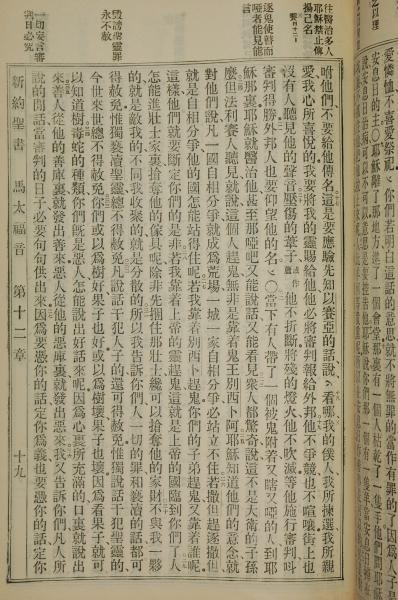 愛憐恤不喜愛祭祀、你們若明白這話的意思就不將無罪的當作有罪的了因爲人子是
安息日的主○耶穌離了那地方進了一個會堂那裏有一個人枯乾了一隻手他們問耶穌
往醫治多人
耶穌禁止傳
揚己名
逐鬼使瞽而
啞者能見能
言
毀謗聖靈罪
永不赦
一切妄言審
判日必究
咐他們、不要給他傳名這是要應驗先知以賽亞的話說、看哪我的僕人我所揀選我所親
愛我心所喜悅的我要將我的靈賜給他他必將審判報給外邦他不爭競也不喧嚷街上也
沒有人聽見他的聲音壓傷的葦子或作蘆他不折斷將殘的燈火他不吹滅等他施行審判叫
審判得勝外邦人也要仰望他的名、○當下有人帶了一個被鬼附着又瞎又啞的人到耶
穌那裏耶穌就醫治他甚至那啞吧又能說話又能看見衆人都驚奇說這不是大衛的子孫
麽但法利賽人聽見就說、這個人趕鬼無非是靠着鬼王別西卜阿耶穌知道他們的意念就
對他們說凡一國自相分爭就成爲荒場一城一家自相分爭必站立不住若撒但趕逐撒但
就是自相分爭他的國怎能站得住呢若我靠着別西卜趕鬼你們的子弟趕鬼又靠着誰呢
這樣他們就要斷定你們的是非若我靠着上帝的靈趕鬼這就是上帝的國臨到你們了人
怎能進壯士家裏搶奪他的傢具呢除非先捆住那壯士纔可以搶奪他的家財不與我一夥
的就是敵我的不同我收聚的就是分散的所以我告訴你們人一切的罪和褻瀆的話都可
得赦免惟獨褻瀆聖靈總不得赦免凡說話干犯人子的還可得赦免惟獨說話干犯聖靈的、
今世來世總不得赦免你們或以爲樹好果子也好或以爲樹壞果子也壞因爲看果子就可
以知道樹毒蛇的種類你們既是惡人怎能說出好話來呢因爲心裏所充滿的口裏就說出
來善人從他的善庫裏就發出善來惡人從他的惡庫裏就發出惡來我又告訴你們凡人所
說的閒話當審判的日子必要句句供出來因爲要憑你的話定你爲義也要憑你的話定你
新約聖書 馬太福音 第十二章 十九